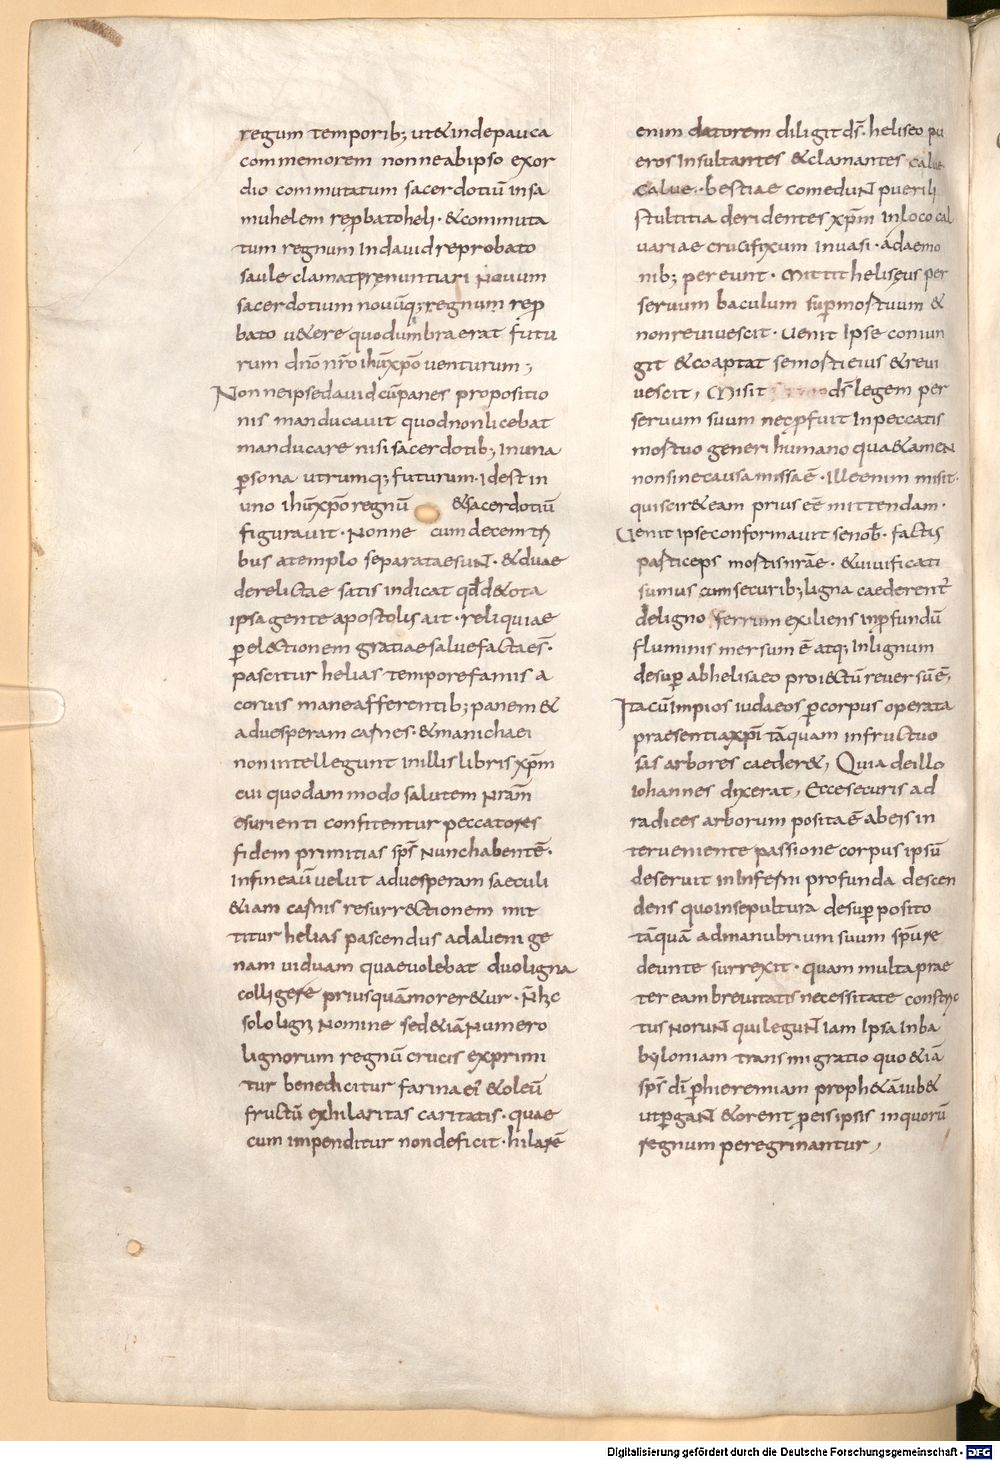 regum temporib; ut&indepauca
commemorem nonneabipso exor
dio commutatum sacerdotiū insa
muhelem rep̱batoheli · &commuta
tum regnum Indauid reprobato
saule clamatp̱renuntiari Nouum
sacerdotium nouūq; regnum rep̱
bato u&ere quodumbraerat futu
rum dn̄o nr̄o ihūxp̄o uenturum;
Nonneipsedauid cūpanes propositio
nis manducauit quodnonlicebat
manducare nisi sacerdotib; Inuna
p̱sona utrumq; futurum · Idest in
uno ihūxp̄o regnū &sacerdotiū
figurauit · Nonne cum decem tri
bus atemplo separataesuNt · &duae
derelictae satis indicat qđ d&ota
ipsa gente apostolis ait · reliquiae
p̱ el&ctionem gratiae saluefactaes̄ ·
pascitur helias tempore famis a
coruis maneafferentib; panem &
aduesperam carnes · &manichaei
nonintellegunt inillis libris xp̄m
cui quodam modo salutem Nr̄am
esurienti confitentur peccatores
fidem primitias sp̄s Nunchabentē ·
Infineaūuelut aduesperam saeculi
&iam carnis resurr&ctionem mit
titur helias pascendus adalieni ge
nam uiduam quaeuolebat duoligna
colligere priusquāmorer&ur · N̄h̄c
sololigni Nomine sed&iāNumero
lignorum regnū crucis exprimi
tur benedicitur farina ei &oleū
fructū exhilaritas caritatis · quae
cum impenditur nondeficit · hilarē
enim datorem diligit ds̄ · heliseo pu
eros Insultantes &clamantes calue
calue · bestiae comeduNt puerili
stultitia deridentes xp̄m Inloco cal
uariae crucifixum Inuasi · ádaemo
nib; pereunt · Mittit heliseus per
seruum baculum sup̱mortuum &
nonreuiuescit · Uenit Ipse coniun
git &coaptat semorti eius &reui
uescit, Misit ds̄ legem per
seruum suum nec p̱fuit Inpeccatis
mortuo generi humano qua&ameN
nonsinecausamissaē · Illeenim misit ·
quiscir&eam prius eē mittendam ·
Uenit ipse conformauit senob̄ · factis
particeps mortis nr̄ae · &uiuificati
sumus cumsecurib; ligna caederent̄
deligno ferrum exiliens inp̱fundū
fluminis mersum ē atq; Inlignum
desup̱ abhelisaeo proi&ctū reuersūē,
Itacū Impios iudaeos p̱corpus operata
praesentiaxp̄i tāquam infructuo
sas arbores caeder&, Quia deillo
Iohannes dixerat, Eccesecuris ad
radices arborum posita ē abeis in
terueniente passione corpus ipsū
deseruit inInferni profunda descen
dens quoinsepultura desup̱ posito
tāquā admanubrium suum sp̄ure
deunte surrexit · quam multaprae
ter eam breuitatis necessitate constric
tus NoruNt quileguNt Iam Ipsa Inba
byloniam transmigratio quo&iā
sp̄s dī p̱hieremiam proph&āiub&
utp̱gaNt &orent p̱eis ipsis inquorū
regnum peregrinantur,
Digitalisierung gefördert durch die Deutsche Forschungsgemeinschaft - DFG